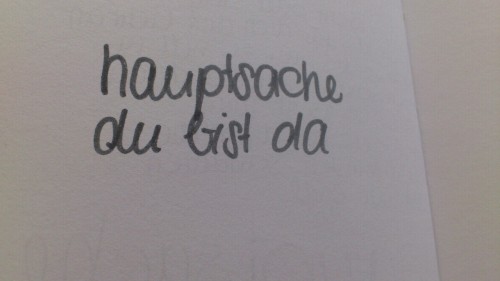 hauptsache
du bist da